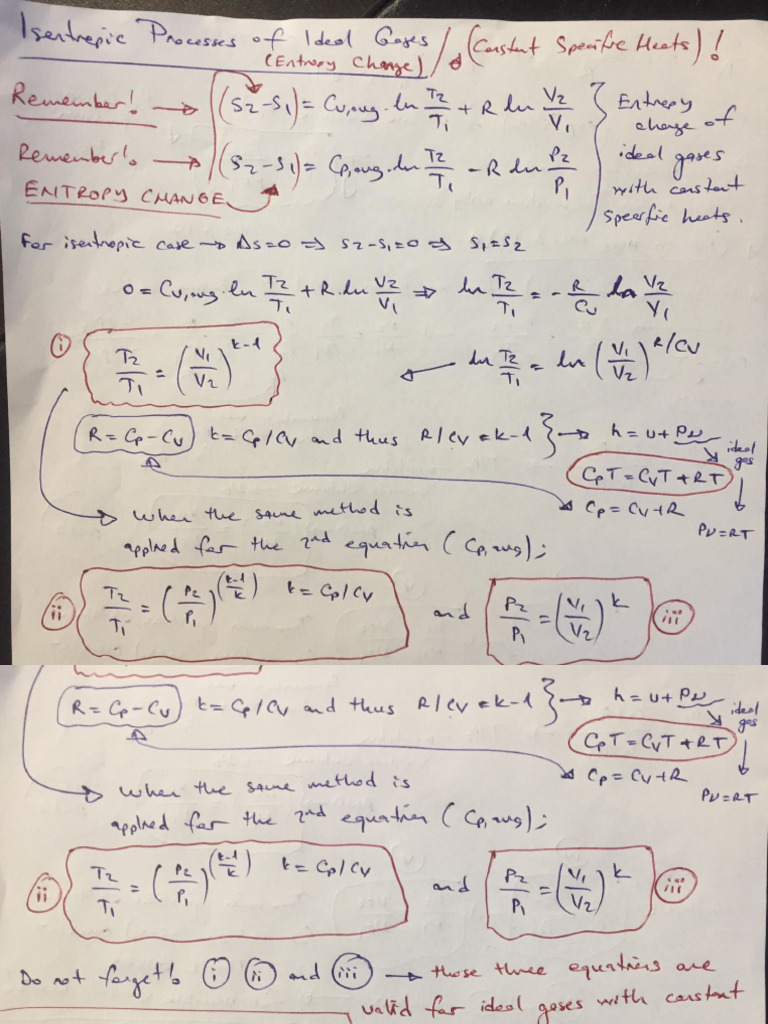 Isentropic Processes of Ideal Gases / (Constant Specific Heats)!
(Entropy Change)
Remember! → (S2-S1) = Cv,avg. ln T2/T1 + R ln V2/V1 } Entropy change of ideal gases with constant specific heats.
Remember! → (S2-S1) = Cp,avg. ln T2/T1 - R ln P2/P1
ENTROPY CHANGE
For isentropic case → Δs=0 ⇒ S2-S1=0 ⇒ S1=S2
0 = Cv,avg. ln T2/T1 + R. ln V2/V1 ⇒ ln T2/T1 = - R/Cv ln V2/V1
i T2/T1 = (V1/V2)^k-1 ← ln T2/T1 = ln (V1/V2)^R/Cv
R = Cp-Cv k = Cp/Cv and thus R/Cv = k-1 } → h = u + Pv ideal gas
CpT = CvT + RT
Cp = Cv + R
Pv=RT
When the same method is
applied for the 2nd equation (Cp,avg);
ii T2/T1 = (P2/P1)^(k-1/k) k = Cp/Cv and P2/P1 = (V1/V2)^k iii
R = Cp-Cv k = Cp/Cv and thus R/Cv = k-1 } → h = u + Pv ideal gas
CpT = CvT + RT
Cp = Cv + R
Pv=RT
When the same method is
applied for the 2nd equation (Cp,avg);
ii T2/T1 = (P2/P1)^(k-1/k) k = Cp/Cv and P2/P1 = (V1/V2)^k iii
Do not forget! i ii and iii → those three equations are
valid for ideal gases with constant